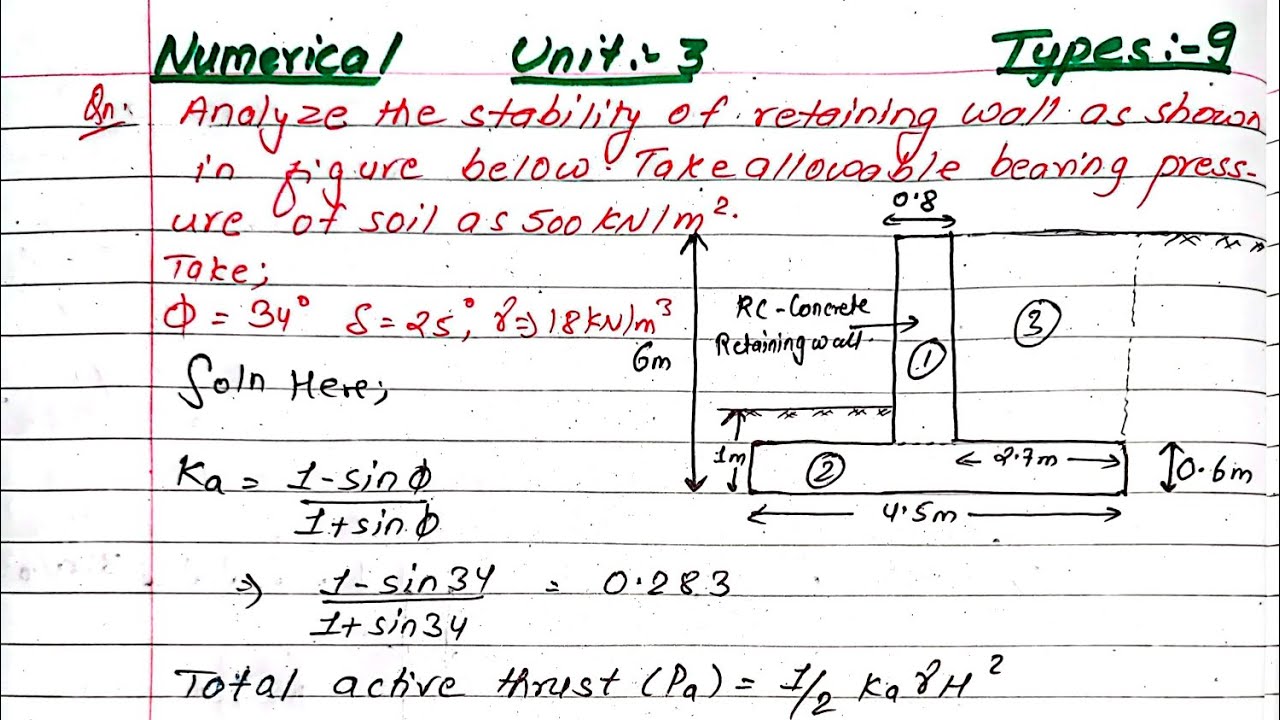 Numerical Unit:- 3 Types:-9
Qn: Analyze the stability of retaining wall as shown
in figure below. Take allowable bearing press-
ure of soil as 500 KN/m².
0.8
Take;
ϕ = 34° δ = 25°, γ ⇒ 18 KN/m³
RC-Concrete
Retaining wall.
①
③
6m
Soln Here;
1m
②
2.7m
0.6m
4.5m
Ka = 1-sinϕ
1+sinϕ
⇒ 1-sin34 = 0.283
1+sin34
Total active thrust (Pa) = 1/2 Ka γ H²